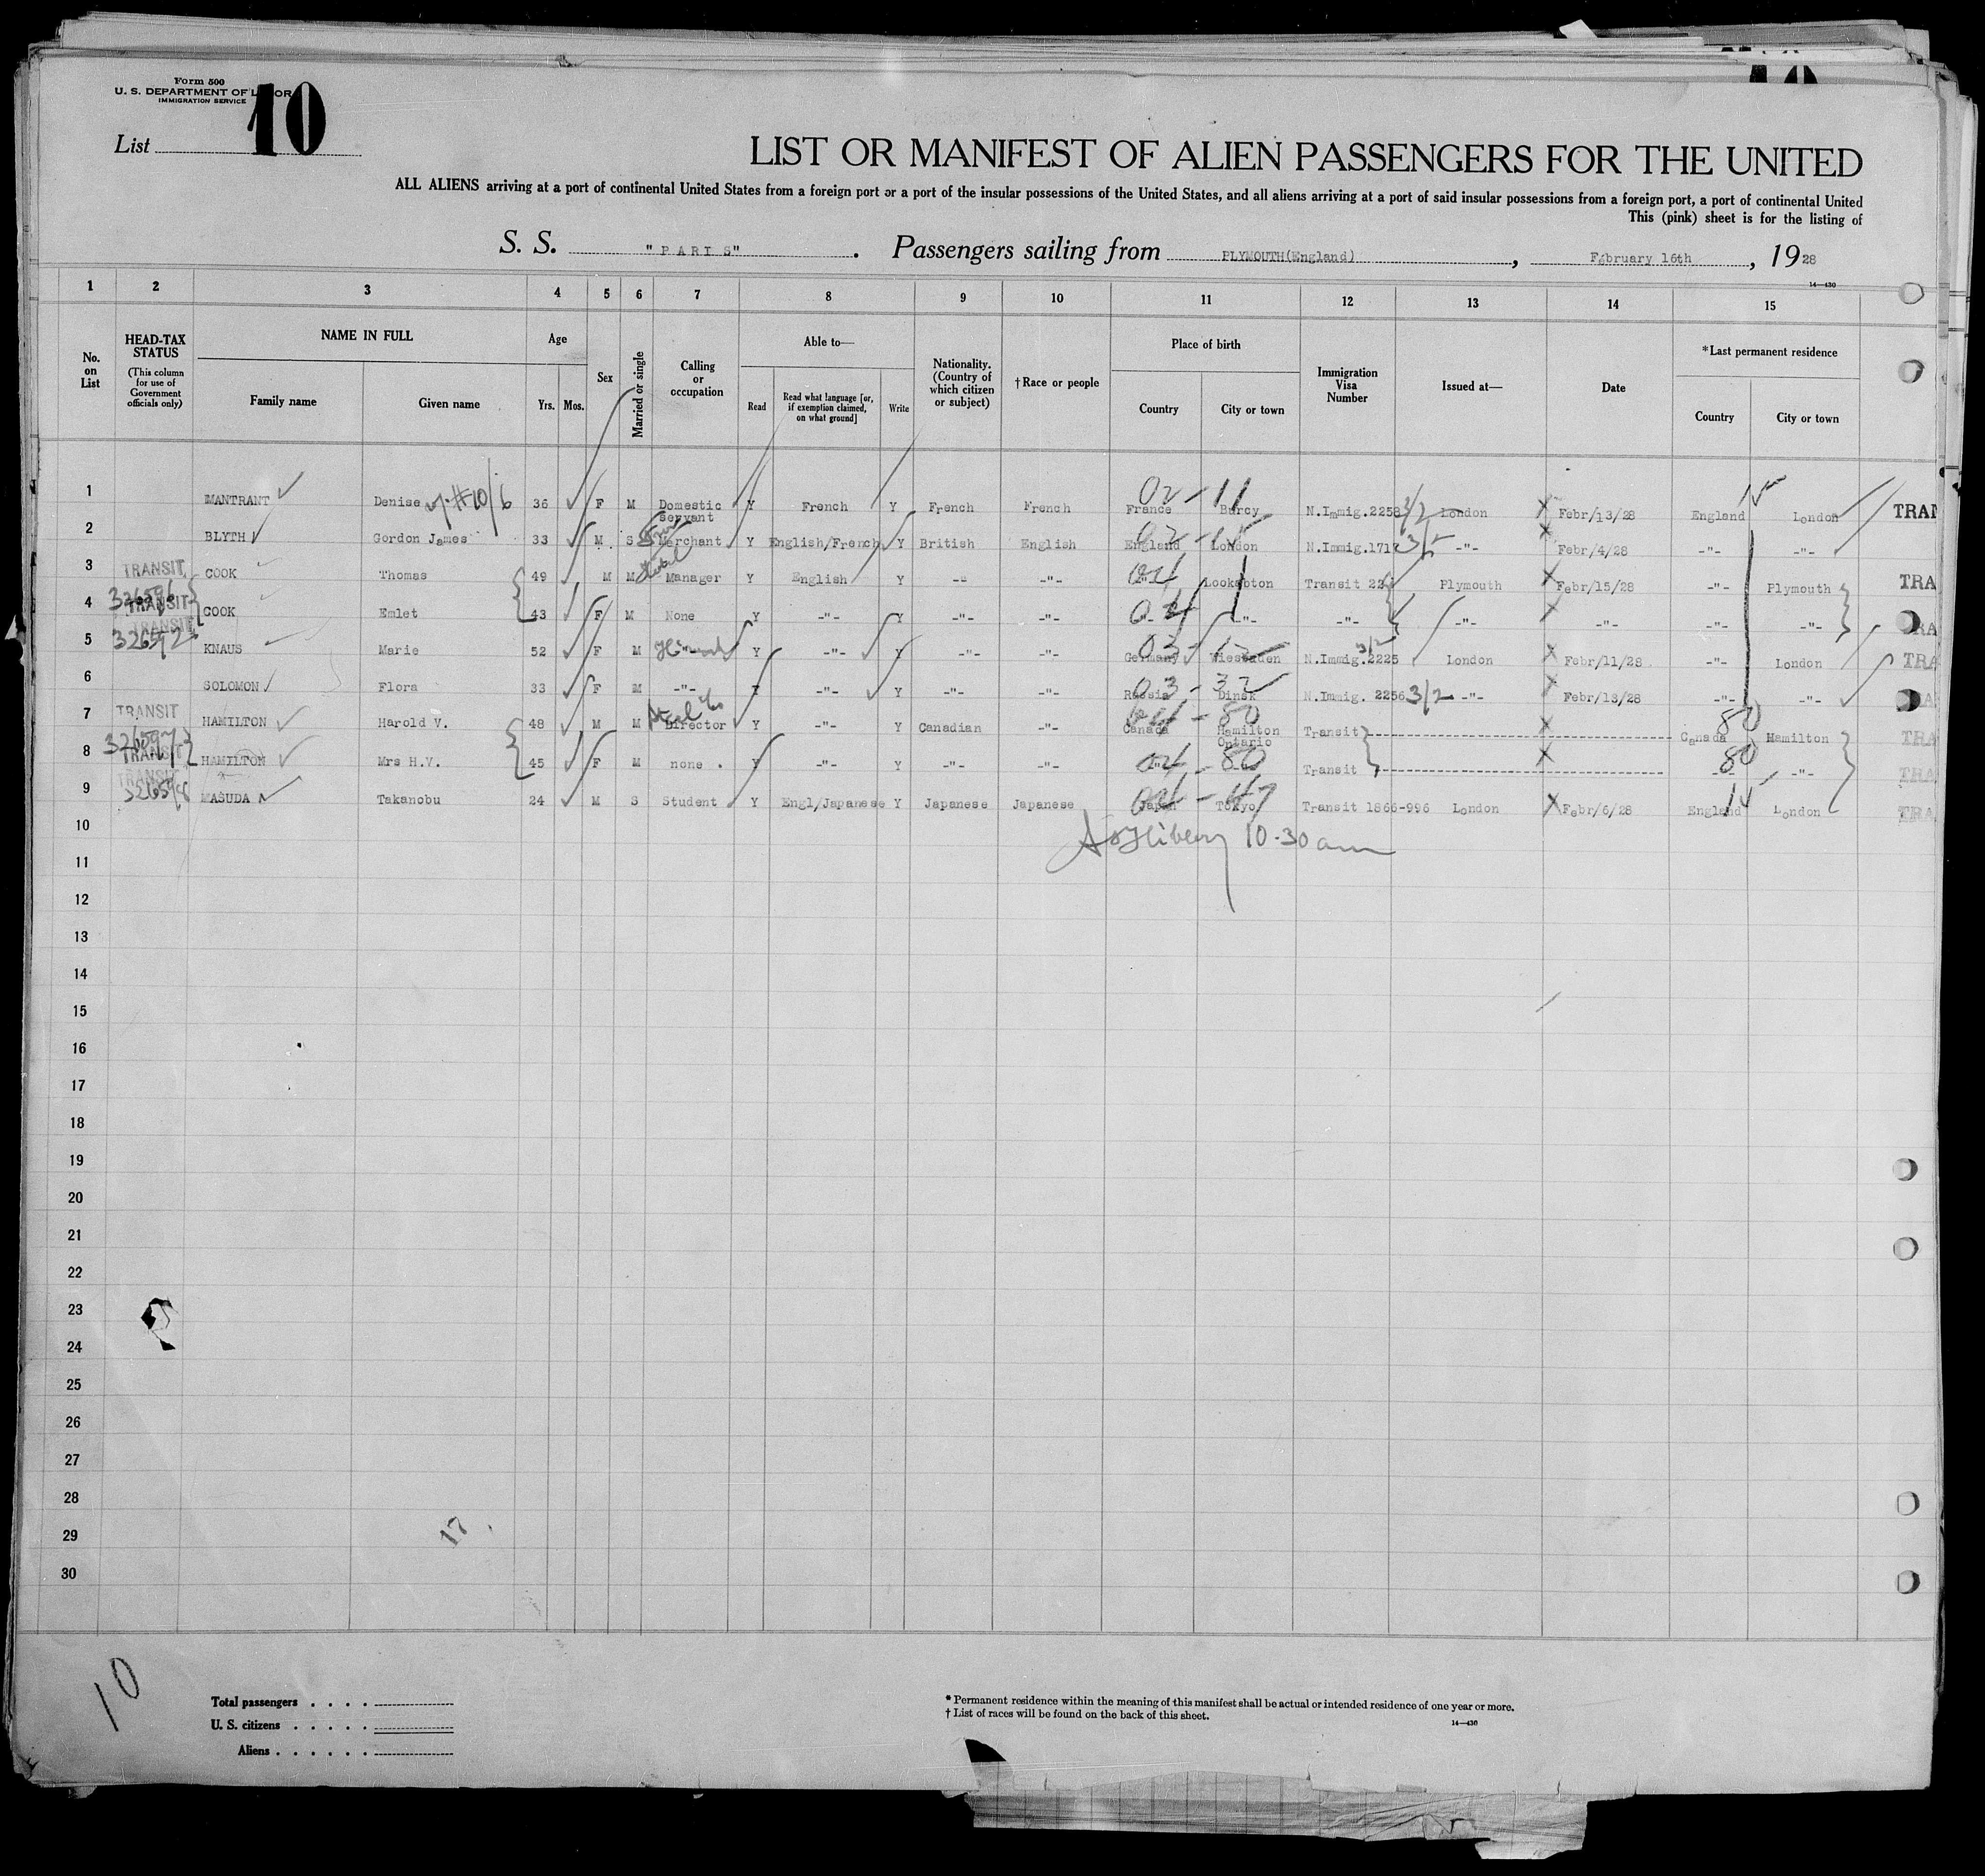 Form 500
U. S. DEPARTMENT OF LABOR
IMMIGRATION SERVICE
List 10
LIST OR MANIFEST OF ALIEN PASSENGERS FOR THE UNITED
ALL ALIENS arriving at a port of continental United States from a foreign port or a port of the insular possessions of the United States, and all aliens arriving at a port of said insular possessions from a foreign port, a port of continental United
This (pink) sheet is for the listing of
S. S. "PARIS". Passengers sailing from PLYMOUTH(England), February 16th, 1928
14—430
1 2 3 4 5 6 7 8 9 10 11 12 13 14 15
No. on List
HEAD-TAX STATUS
(This column for use of Government officials only)
NAME IN FULL
Family name
Given name
Age
Yrs. Mos.
Sex
Married or single
Calling or occupation
Able to—
Read
Read what language [or, if exemption claimed, on what ground]
Write
Nationality. (Country of which citizen or subject)
† Race or people
Place of birth
Country
City or town
Immigration Visa Number
Issued at—
Date
*Last permanent residence
Country
City or town
1 MANTRANT Denise 36 F M Domestic servant Y French Y French French France Bercy N.Immig.2258 London Febr/13/28 England London TRAN
2 BLYTH Gordon James 33 M S Merchant Y English/French Y British English England London N.Immig.1717 -"- Febr/4/28 -"- -"-
3 TRANSIT COOK Thomas 49 M M Hotel Manager Y English Y -"- -"- Transit Plymouth Febr/15/28 -"- Plymouth TRA
4 326596 TRANSIT COOK Emlet 43 F M None Y -"- Y -"- -"- -"- -"- -"- -"- -"- -"- RA
5 TRANSIT KNAUS Marie 52 F M Y -"- Y -"- -"- Germany Wiesbaden N.Immig.2225 London Febr/11/28 -"- London TRA
6 SOLOMON Flora 33 F M -"- Y -"- Y -"- -"- Russia N.Immig. 2256 -"- Febr/13/28 -"- -"-
7 TRANSIT HAMILTON Harold V. 48 M M Steel Co Director Y -"- Y Canadian -"- Canada Hamilton Ontario Transit Canada Hamilton TRA
8 326597 TRANSIT HAMILTON Mrs H.V. 45 F M none . Y -"- Y -"- -"- -"- Transit -"- -"- TRA
9 TRANSIT 326598 MASUDA Takanobu 24 M S Student Y Engl/Japanese Y Japanese Japanese Japan Tokyo Transit 1866-996 London Febr/6/28 England London TRA
10 10-30 am
11
12
13
14
15
16
17
18
19
20
21
22
23
24
25
26
27
28
29
17
30
10
Total passengers . . . .
U. S. citizens . . . . .
Aliens . . . . . .
* Permanent residence within the meaning of this manifest shall be actual or intended residence of one year or more.
† List of races will be found on the back of this sheet.
14—430